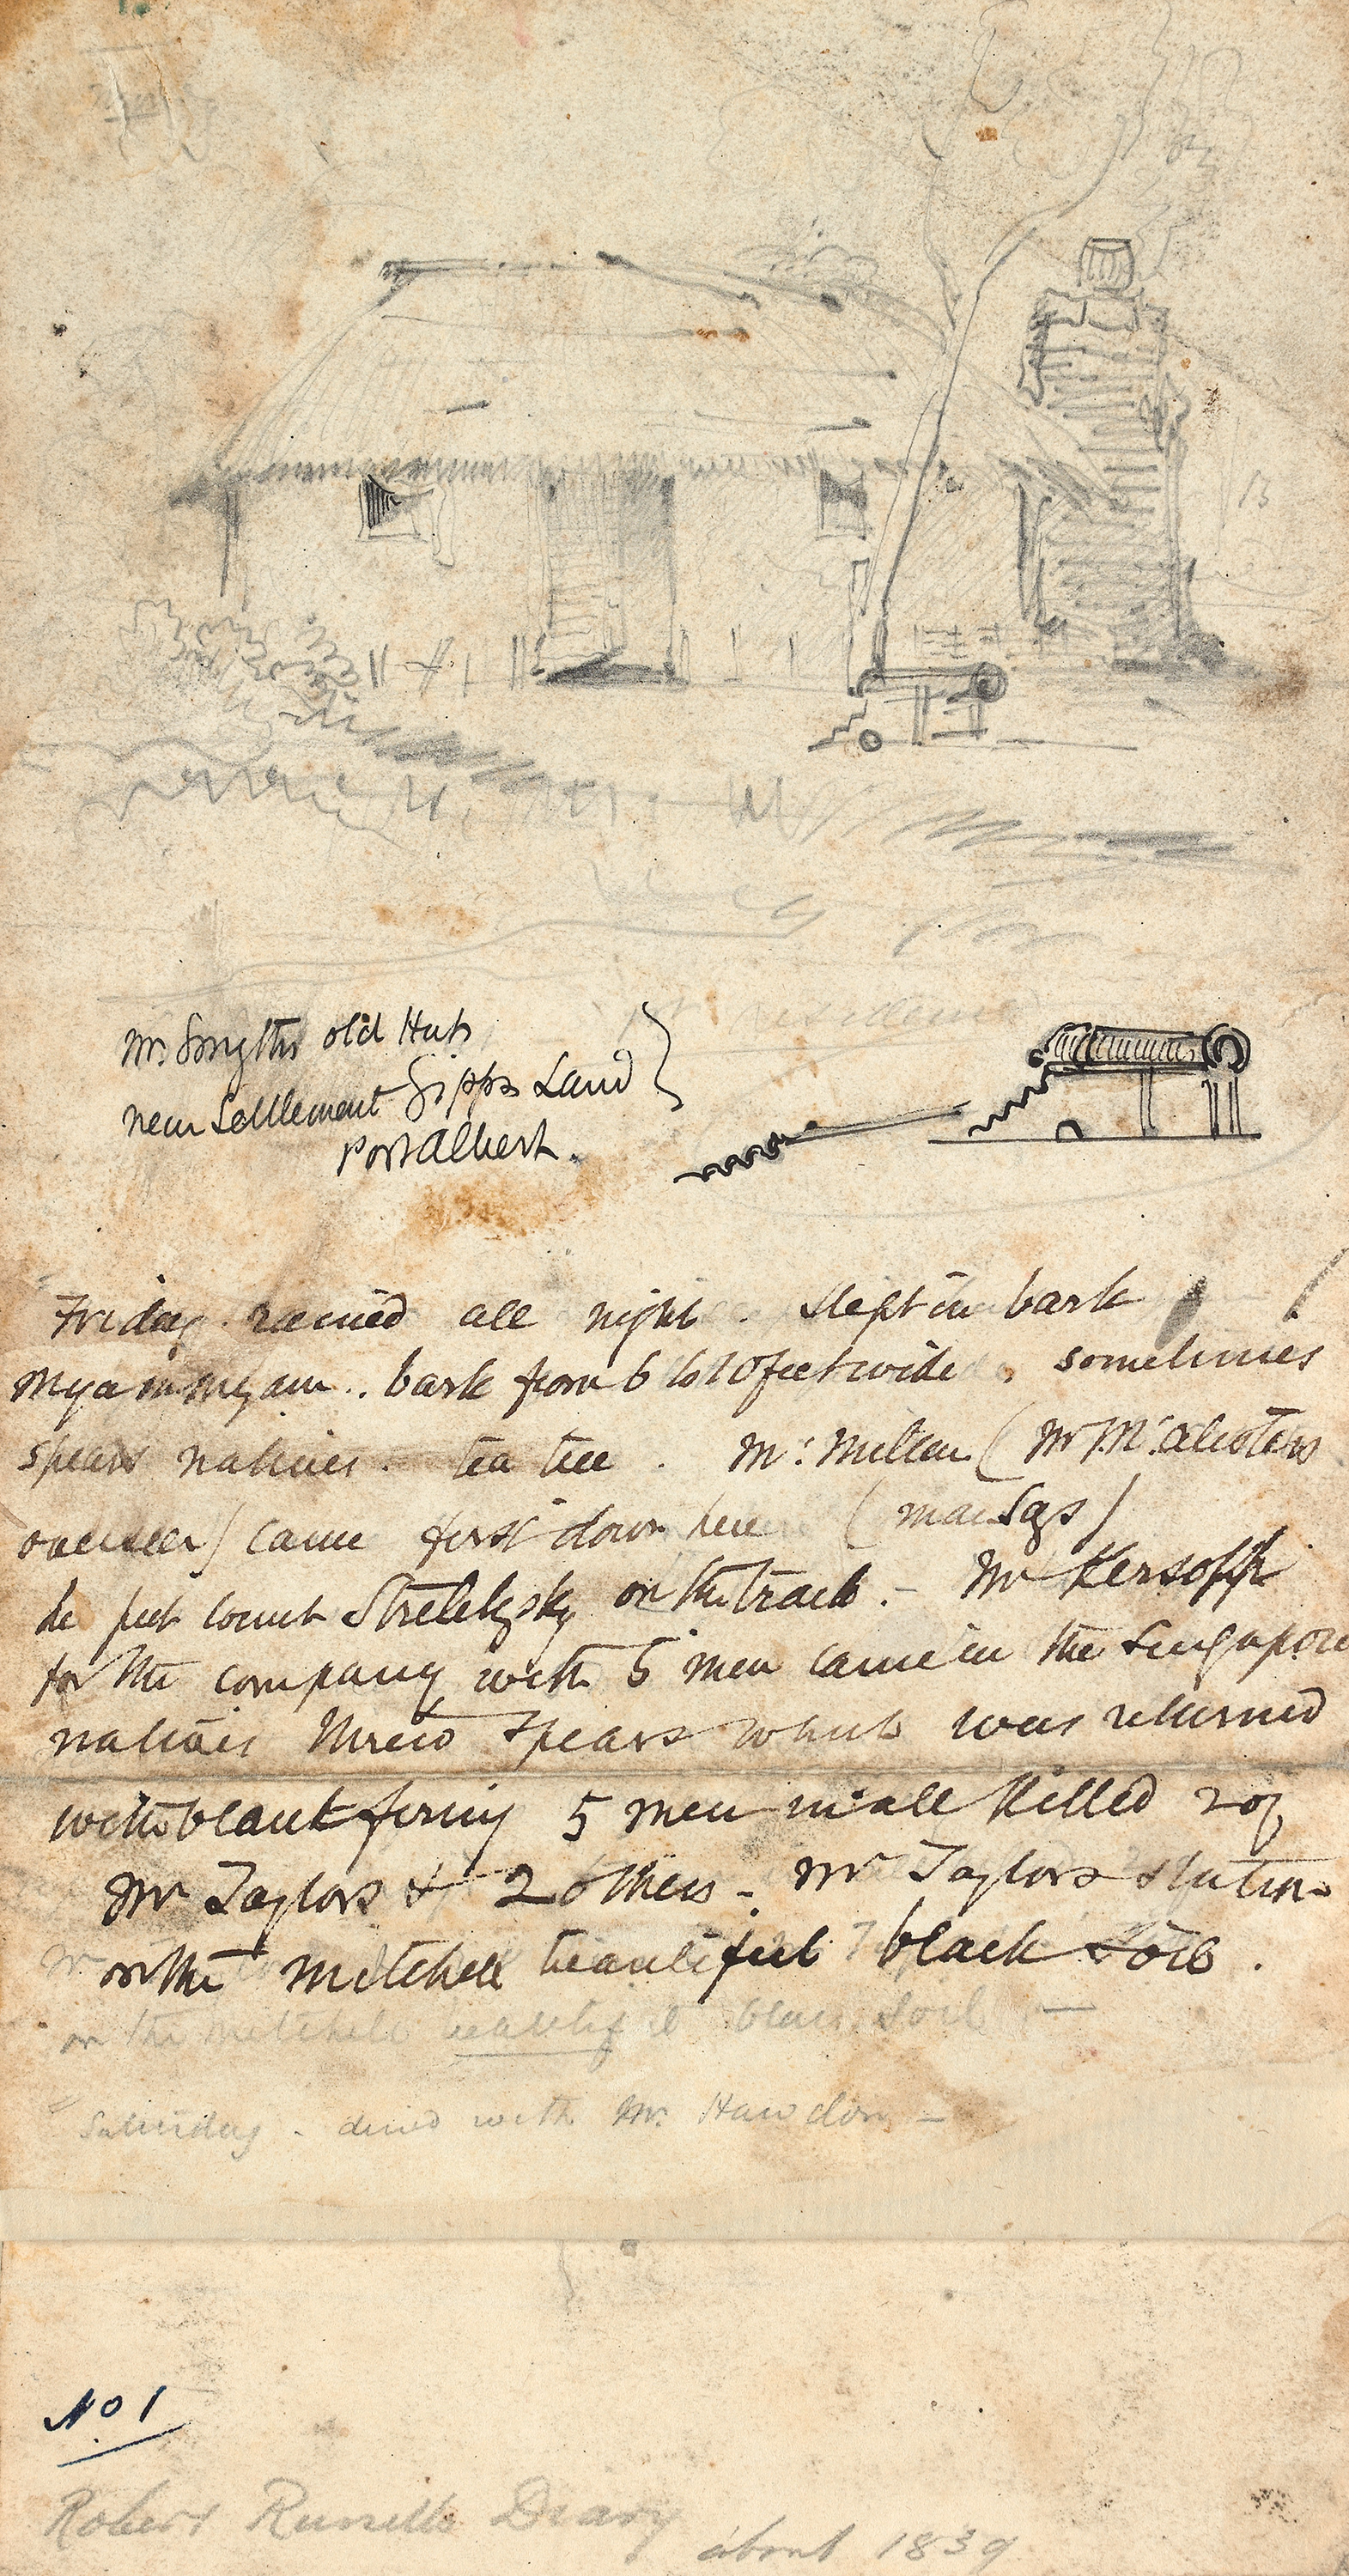 Mr. Smyths old Hut
near Settlement Gipps Land
Port Albert.
Friday. rained all night. Slept in bark
Myam myam.. bark from 6 to 10 feet wide, sometimes
spears natives. tea tree. Mc: Millan (Mr Mc.alisters
overseer) came first down here
he put count Streletzsky on the track. - Mr Kersopp
for the company with 5 men came in the Singapore
natives threw spears which was returned
with blank firing 5 men in all Killed 2 of
Mr Taylors & 2 others - Mr Taylors station
on the Mitchell beautiful black soil.
on the Mitchell beautiful black soil -
Saturday. dined with Mr. Hawdon -
No 1
Robert Russells Diary
about 1839